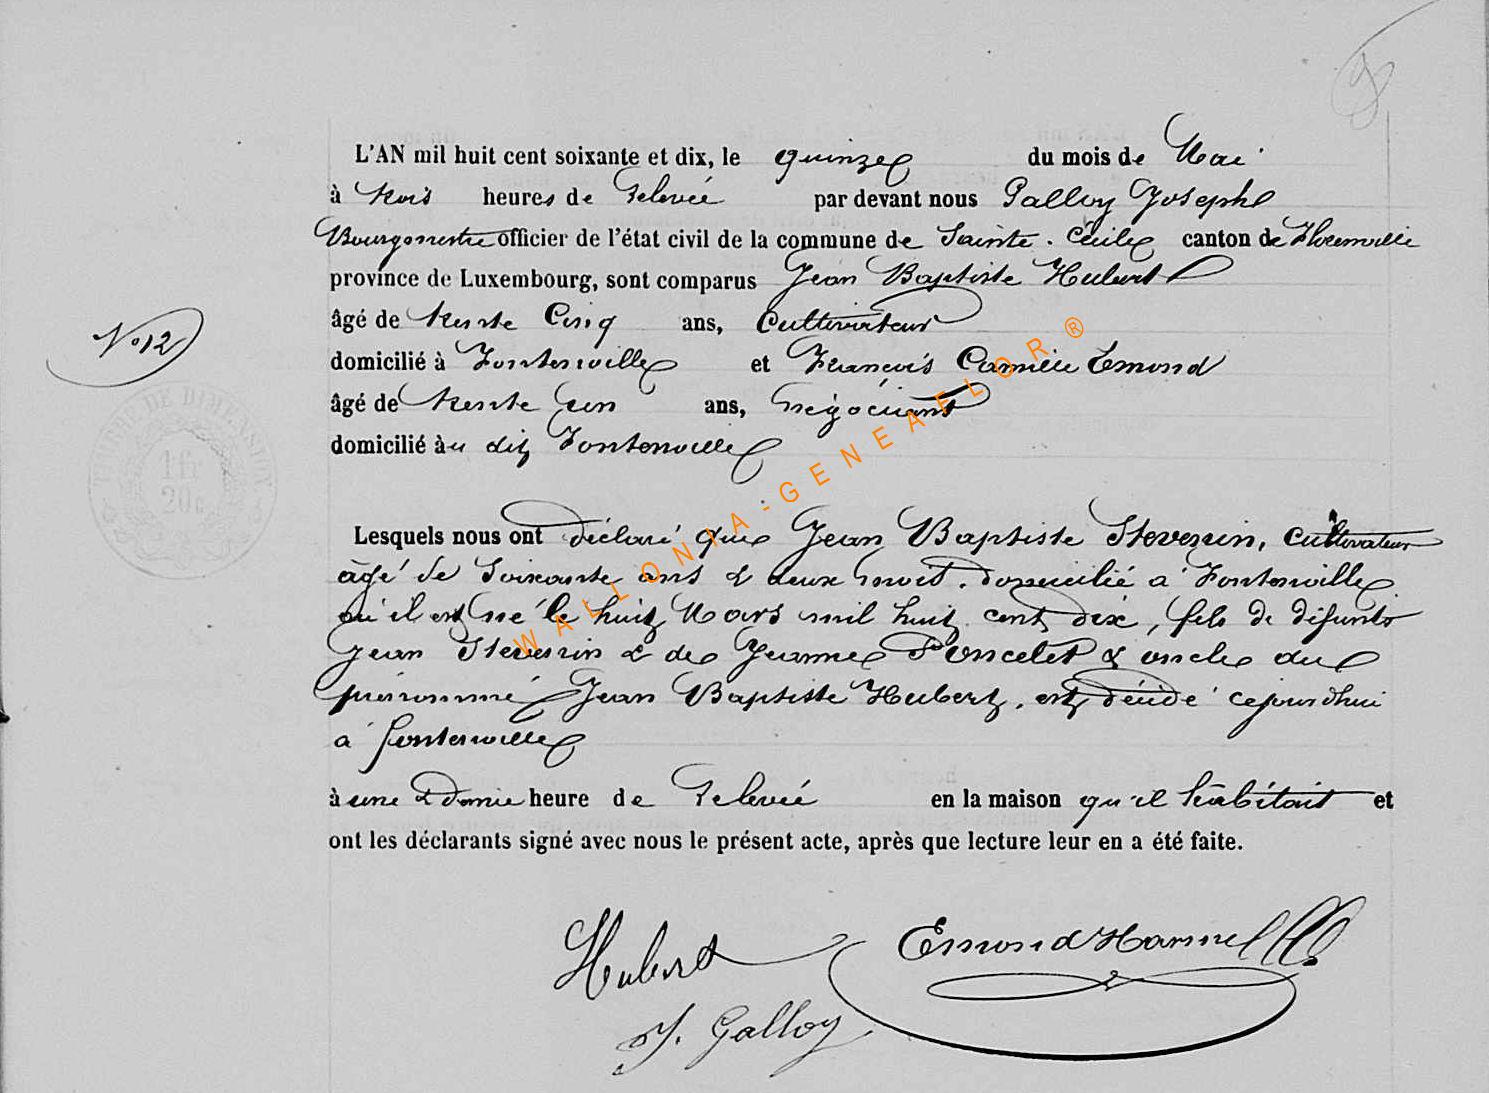 L'AN mil huit cent soixante et dix, le quinze du mois de Mai
à trois heures de relevée par devant nous Galloy Joseph
Bourgmestre officier de l'état civil de la commune de Sainte-Cécile canton de Florenville
province de Luxembourg, sont comparus Jean Baptiste Hubert
âgé de trente cinq ans, cultivateur
N° 12
domicilié à Fontenoille et François Camille Emond
âgé de trente un ans, négociant
domicilié àu dit Fontenoille
1 fr
20 c
Lesquels nous ont déclaré que Jean Baptiste Stevenin, cultivateur
âgé de soixante ans & deux mois, domicilié à Fontenoille
où il est né le huit Mars mil huit cent dix, fils de défunts
Jean Stevenin & de Jeanne Poncelet & oncle du
prénommé Jean Baptiste Hubert, est décédé cejourd'hui
à Fontenoille
à une & demie heure de relevée en la maison qu'il habitait et
ont les déclarants signé avec nous le présent acte, après que lecture leur en a été faite.
Hubert Emond Hannel
J. Galloy
WALLONIA-GENEAFLOR®